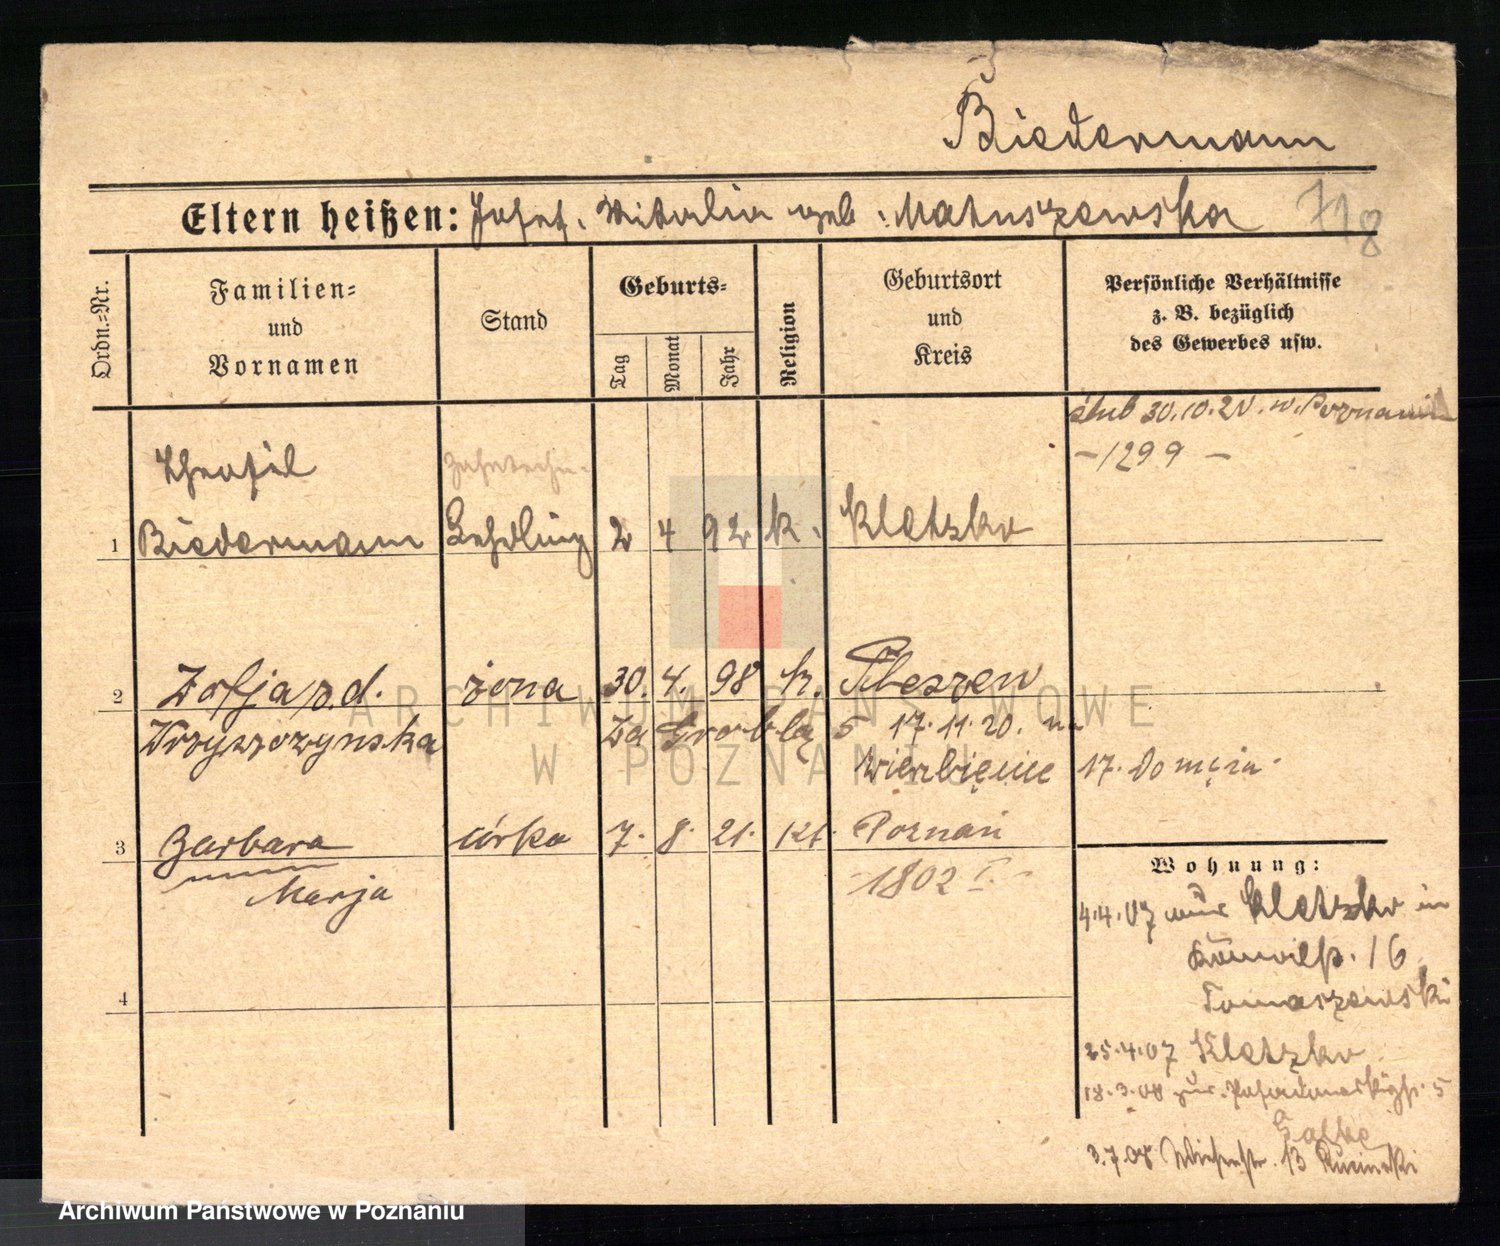 Biedermann
Eltern heißen: Josef, Viktoria geb. Matuszewska 718
Ordn.-Nr.
Familien-
und
Vornamen
Stand
Geburts-
Tag Monat Jahr
Religion
Geburtsort
und
Kreis
Persönliche Verhältnisse
z. B. bezüglich
des Gewerbes usw.
ślub 30.10.20. w. Poznaniu
- 1299 -
Theofil Zahntechn-
1 Biedermann Lehrling 2 4 92 k. Kletzko
2 Zofja z d. żona 30. 4. 98 k. Pleszew
Krzyszczynska Za Groblą 5 17.11.20. na
Wierzbięcice 17. Domęia
3 Barbara córka 7. 8. 21. kt. Poznań
Marja - 1802 I. -
4
Wohnung:
4.4.07 aus Kletzko in
16
Tomaszewski
25.4.07 Kletzko
18.3.08 zur. 5
3.7.08 Wiesenstr. 13
ARCHIWUM PAŃSTWOWE
W POZNANIU
Archiwum Państwowe w Poznaniu